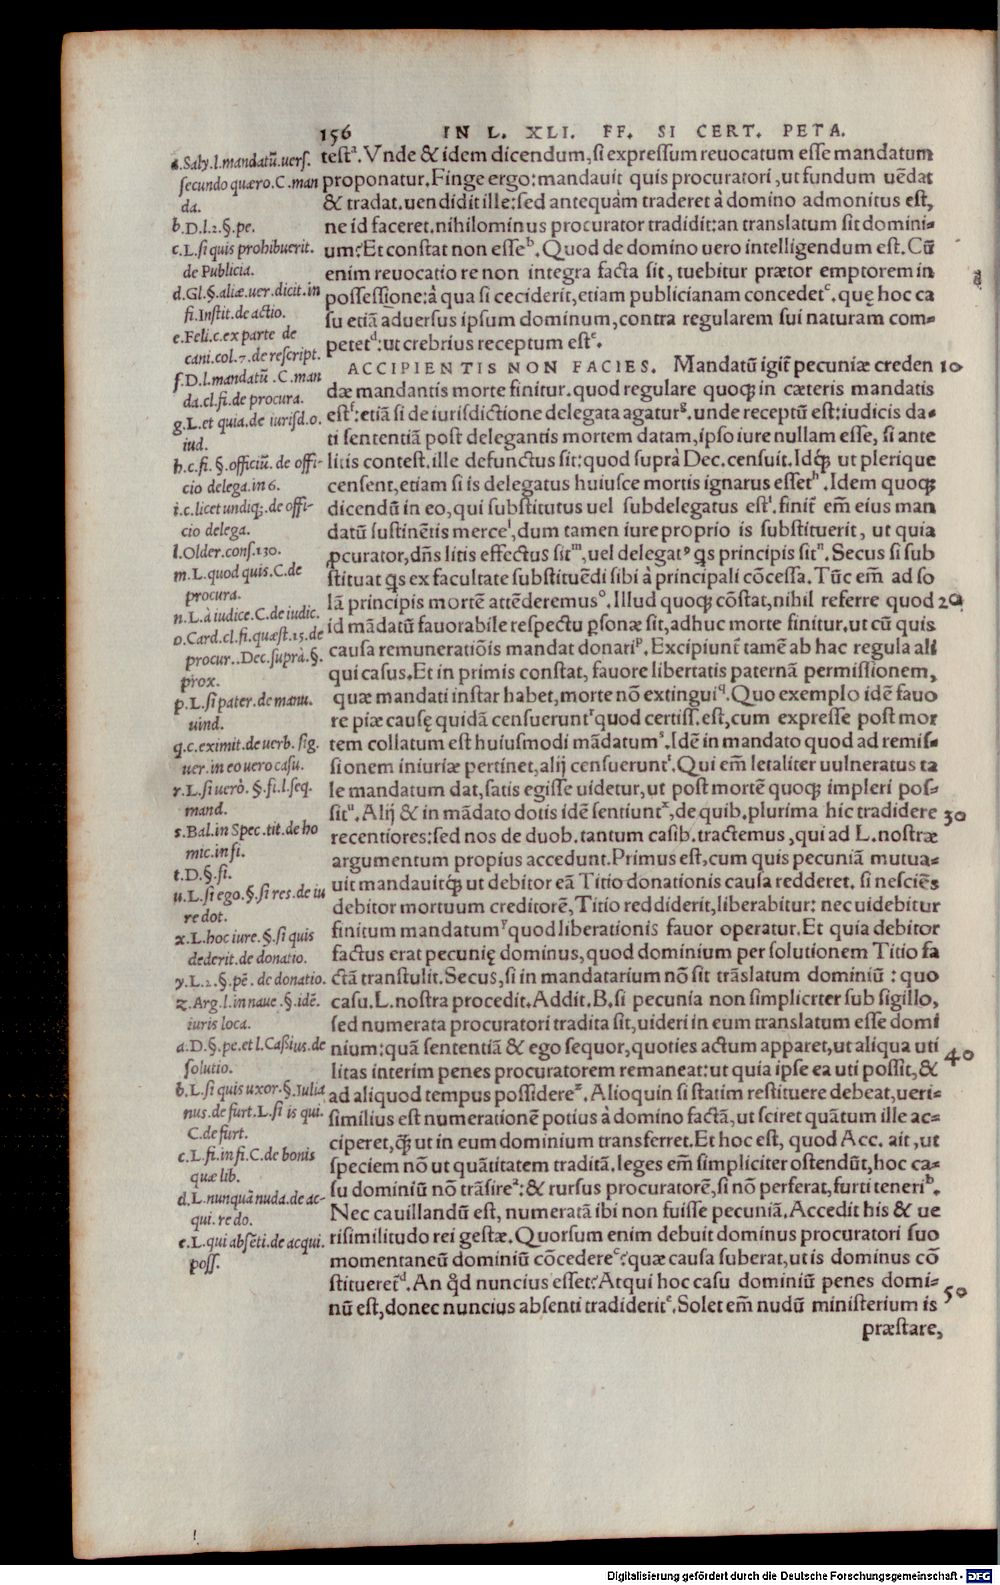 156 IN L. XLI. FF. SI CERT. PETA.
testᵃ. Vnde & idem dicendum, si expressum reuocatum esse mandatum
proponatur. Finge ergo: mandauit quis procuratori, ut fundum uēdat
& tradat. uendidit ille: sed antequàm traderet à domino admonitus est,
ne id faceret. nihilominus procurator tradidit: an translatum sit domini-
um? Et constat non esseᵇ. Quod de domino uero intelligendum est. Cū
enim reuocatio re non integra facta sit, tuebitur prætor emptorem in
possessione: à qua si ceciderit, etiam publicianam concedetᶜ. quę hoc ca
su etiā aduersus ipsum dominum, contra regularem sui naturam com-
petetᵈ: ut crebrius receptum estᵉ.
ACCIPIENTIS NON FACIES. Mandatū igit̃ pecuniæ creden 10
dæ mandantis morte finitur. quod regulare quoq; in cæteris mandatis
estᶠ: etiā si de iurisdictione delegata agaturᵍ. unde receptū est: iudicis da-
ti sententiā post delegantis mortem datam, ipso iure nullam esse, si ante
litis contest. ille defunctus sit: quod suprà Dec. censuit. Idq́; ut plerique
censent, etiam si is delegatus huiusce mortis ignarus essetʰ. Idem quoq;
dicendū in eo, qui substitutus uel subdelegatus estⁱ. finit̃ em̃ eius man
datū sustinētis merceˡ, dum tamen iure proprio is substituerit, ut quia
ꝓcurator, dñs litis effectus sitᵐ, uel delegatꝰ qs principis sitⁿ. Secus si sub
stituat qs ex facultate substituēdi sibi à principali cōcessa. Tūc em̃ ad so
lā principis mortē attēderemusᵒ. Illud quoq; cōstat, nihil referre quod 20
id mādatū fauorabile respectu ꝑsonæ sit, adhuc morte finitur. ut cū quis
causa remuneratiōis mandat donariᵖ. Excipiunt̃ tamē ab hac regula ali
qui casus. Et in primis constat, fauore libertatis paternā permissionem,
quæ mandati instar habet, morte nō extingui�q. Quo exemplo idē fauo
re piæ causę quidā censueruntʳ quod certiss. est, cum expresse post mor
tem collatum est huiusmodi mādatumˢ. Idē in mandato quod ad remis-
sionem iniuriæ pertinet, alij censueruntᵗ. Qui em̃ letaliter uulneratus ta
le mandatum dat, satis egisse uidetur, ut post mortē quoq; impleri pos-
sitᵘ. Alij & in mādato dotis idē sentiuntˣ, de quib. plurima hic tradidere 30
recentiores: sed nos de duob. tantum casib. tractemus, qui ad L. nostræ
argumentum propius accedunt. Primus est, cum quis pecuniā mutua-
uit mandauitq́; ut debitor eā Titio donationis causa redderet. si nesciēs
debitor mortuum creditorē, Titio reddiderit, liberabitur: nec uidebitur
finitum mandatumʸ quod liberationis fauor operatur. Et quia debitor
factus erat pecunię dominus, quod dominium per solutionem Titio fa
ctā transtulit. Secus, si in mandatarium nō sit trāslatum dominiū: quo
casu. L. nostra procedit. Addit. B. si pecunia non simplicrter sub sigillo,
sed numerata procuratori tradita sit, uideri in eum translatum esse domi
nium: quā sententiā & ego sequor, quoties actum apparet, ut aliqua uti 40
litas interim penes procuratorem remaneat: ut quia ipse ea uti possit, &
ad aliquod tempus possidereᶻ. Alioquin si statim restituere debeat, ueri-
similius est numerationē potius à domino factā, ut sciret quātum ille ac-
ciperet, q̄; ut in eum dominium transferret. Et hoc est, quod Acc. ait, ut
speciem nō ut quātitatem traditā. leges em̃ simpliciter ostendūt, hoc ca-
su dominiū nō trāsireᵃ: & rursus procuratorē, si nō perferat, furti teneriᵇ.
Nec cauillandū est, numeratā ibi non fuisse pecuniā. Accedit his & ue
risimilitudo rei gestæ. Quorsum enim debuit dominus procuratori suo
momentaneū dominiū cōcedereᶜ? quæ causa suberat, ut is dominus cō
stitueret̃ᵈ. An qd̓ nuncius esset? Atqui hoc casu dominiū penes domi-
nū est, donec nuncius absenti tradideritᵉ. Solet em̃ nudū ministerium is 50
præstare,
a. Saly. l. mandatū. uers.
secundo quæro. C. man
da.
b. D. l. 2. §. pe.
c. L. si quis prohibuerit.
de Publicia.
d. Gl. §. aliæ. uer. dicit. in
fi. Instit. de actio.
e. Feli. c. ex parte de
cani. col. 7. de rescript.
f. D. l. mandatū. C. man
da. cl. fi. de procura.
g. L. et quia. de iurisd. o.
iud.
h. c. fi. §. officiū. de offi-
cio delega. in 6.
i. c. licet undiq;. de offi-
cio delega.
l. Older. cons. 130.
m. L. quod quis. C. de
procura.
n. L. à iudice. C. de iudic.
o. Card. cl. fi. quæst. 15. de
procur.. Dec. suprà. §.
prox.
p. L. si pater. de manu.
uind.
q. c. eximit. de uerb. sig.
uer. in eo uero casu.
r. L. si uerò. §. fi. l. seq.
mand.
s. Bal. in Spec. tit. de ho
mic. in fi.
t. D. §. fi.
u. L. si ego. §. si res. de iu
re dot.
x. L. hoc iure. §. si quis
dederit. de donatio.
y. L. 2. §. pē. de donatio.
z. Arg. l. in naue. §. idē.
iuris loca.
a. D. §. pe. et l. Caßius. de
solutio.
b. L. si quis uxor. §. Iulia
nus. de furt. L. si is qui.
C. de furt.
c. L. fi. in fi. C. de bonis
quæ lib.
d. L. nunquā nuda. de ac-
qui. re do.
e. L. qui absēti. de acqui.
poss.
Digitalisierung gefördert durch die Deutsche Forschungsgemeinschaft - DFG